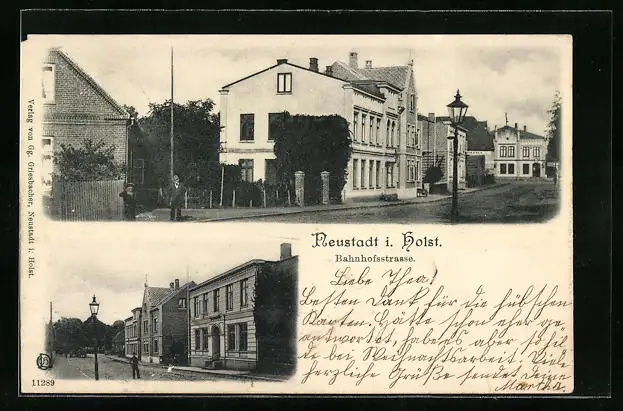 Verlag von Gg. Griesbacher, Neustadt i. Holst.
Neustadt i. Holst.
Bahnhofsstrasse.
Liebe Thea!
Besten Dank für die hübschen
Karten. Hätte schon eher ge-
antwortet, hab es aber so
de bei Weihnachtsarbeit. Viele
herzliche Grüße sendet deine
Martha.
11289